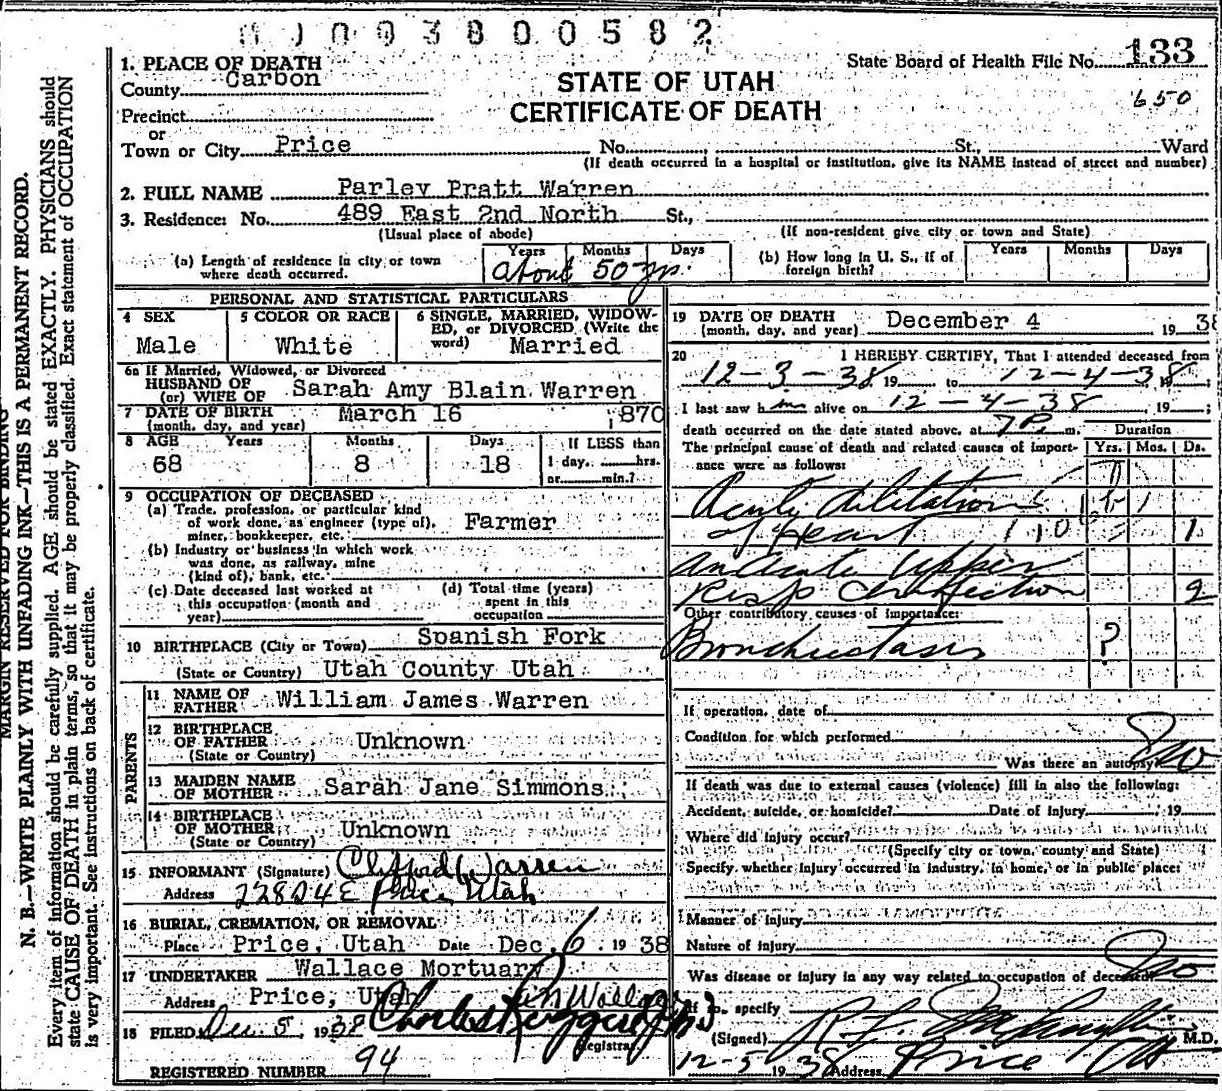 N J 0 0 3 8 0 0 5 8 2
State Board of Health File No. 133
650
STATE OF UTAH
CERTIFICATE OF DEATH
1. PLACE OF DEATH
County Carbon
Precinct
or
Town or City Price No. St., Ward
(If death occurred in a hospital or institution, give its NAME instead of street and number)
2. FULL NAME Parley Pratt Warren
3. Residence: No. 489 East 2nd North St.,
(Usual place of abode) (If non-resident give city or town and State)
(a) Length of residence in city or town where death occurred. Years Months Days
about 50 yrs.
(b) How long in U. S., if of foreign birth? Years Months Days
PERSONAL AND STATISTICAL PARTICULARS
4 SEX Male
5 COLOR OR RACE White
6 SINGLE, MARRIED, WIDOWED, or DIVORCED (Write the word) Married
6a If Married, Widowed, or Divorced
HUSBAND OF
(or) WIFE OF Sarah Amy Blain Warren
7 DATE OF BIRTH March 16 1870
(month, day, and year)
8 AGE Years Months Days If LESS than
68 8 18 1 day, hrs.
or min.?
9 OCCUPATION OF DECEASED
(a) Trade, profession, or particular kind
of work done, as engineer (type of), Farmer
miner, bookkeeper, etc.
(b) Industry or business in which work
was done, as railway, mine
(kind of), bank, etc.
(c) Date deceased last worked at
this occupation (month and
year)
(d) Total time (years)
spent in this
occupation
10 BIRTHPLACE (City or Town) Spanish Fork
(State or Country) Utah County Utah
PARENTS
11 NAME OF
FATHER William James Warren
12 BIRTHPLACE
OF FATHER Unknown
(State or Country)
13 MAIDEN NAME
OF MOTHER Sarah Jane Simmons
14 BIRTHPLACE
OF MOTHER Unknown
(State or Country)
15 INFORMANT (Signature) Clifford Warren
Address Price, Utah
16 BURIAL, CREMATION, OR REMOVAL
Place Price, Utah Date Dec. 6 1938
17 UNDERTAKER Wallace Mortuary
Address Price, Utah
18 FILED Dec. 5, 1938
Registrar
REGISTERED NUMBER 94
19 DATE OF DEATH December 4 1938
(month, day, and year)
20 I HEREBY CERTIFY, That I attended deceased from
12-3-38 19 to 12-4-38 19 ;
I last saw him alive on 12-4-38 19 ;
death occurred on the date stated above, at 7P. m. Duration
The principal cause of death and related causes of importance were as follows: Yrs. Mos. Ds.
Acute dilitation
of Heart 1
Upper
Resp 2
Other contributory causes of importance:
Bronchiectasis ?
If operation, date of
Condition for which performed
Was there an autopsy No
If death was due to external causes (violence) fill in also the following:
Accident, suicide, or homicide? Date of Injury 19
Where did injury occur?
(Specify city or town, county and State)
Specify whether injury occurred in industry, in home, or in public place:
Manner of injury
Nature of injury
Was disease or injury in any way related to occupation of deceased No
If so, specify
(Signed) M.D.
12-5 19 38 Address Price Ut
MARGIN RESERVED FOR BINDING
N. B.—WRITE PLAINLY WITH UNFADING INK—THIS IS A PERMANENT RECORD.
Every item of information should be carefully supplied. AGE should be stated EXACTLY. PHYSICIANS should
state CAUSE OF DEATH in plain terms, so that it may be properly classified. Exact statement of OCCUPATION
is very important. See instructions on back of certificate.